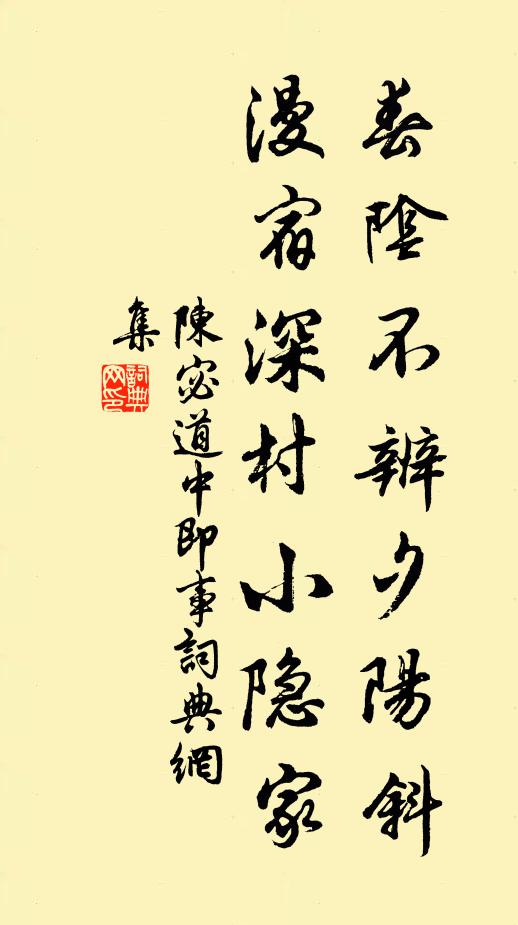 春陰不辨夕陽斜
漫宿深村小隐家
陳宓道中即事詞典網
集
詞典网印